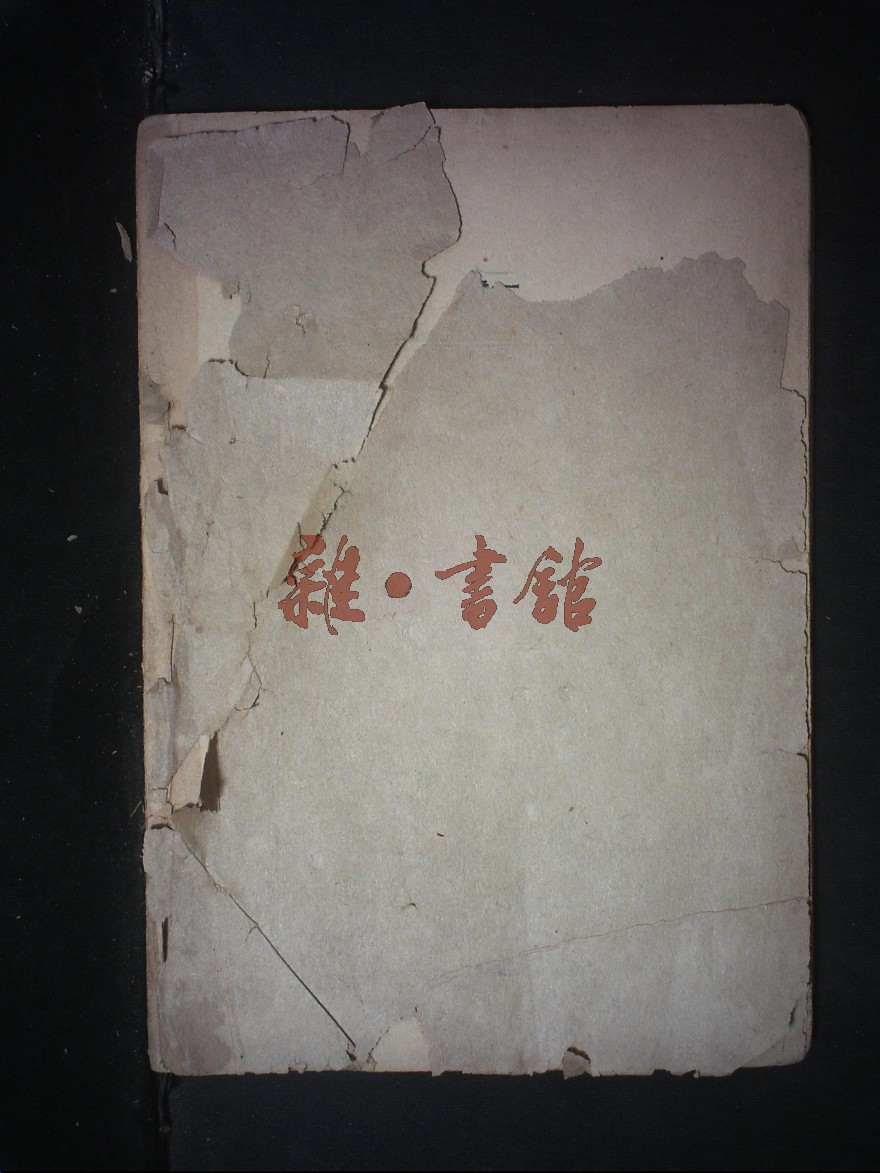 雜·書館